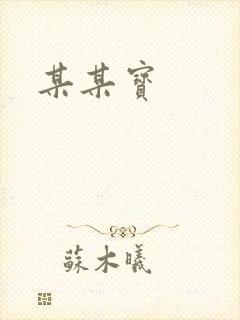 某某寶
蘇木曦